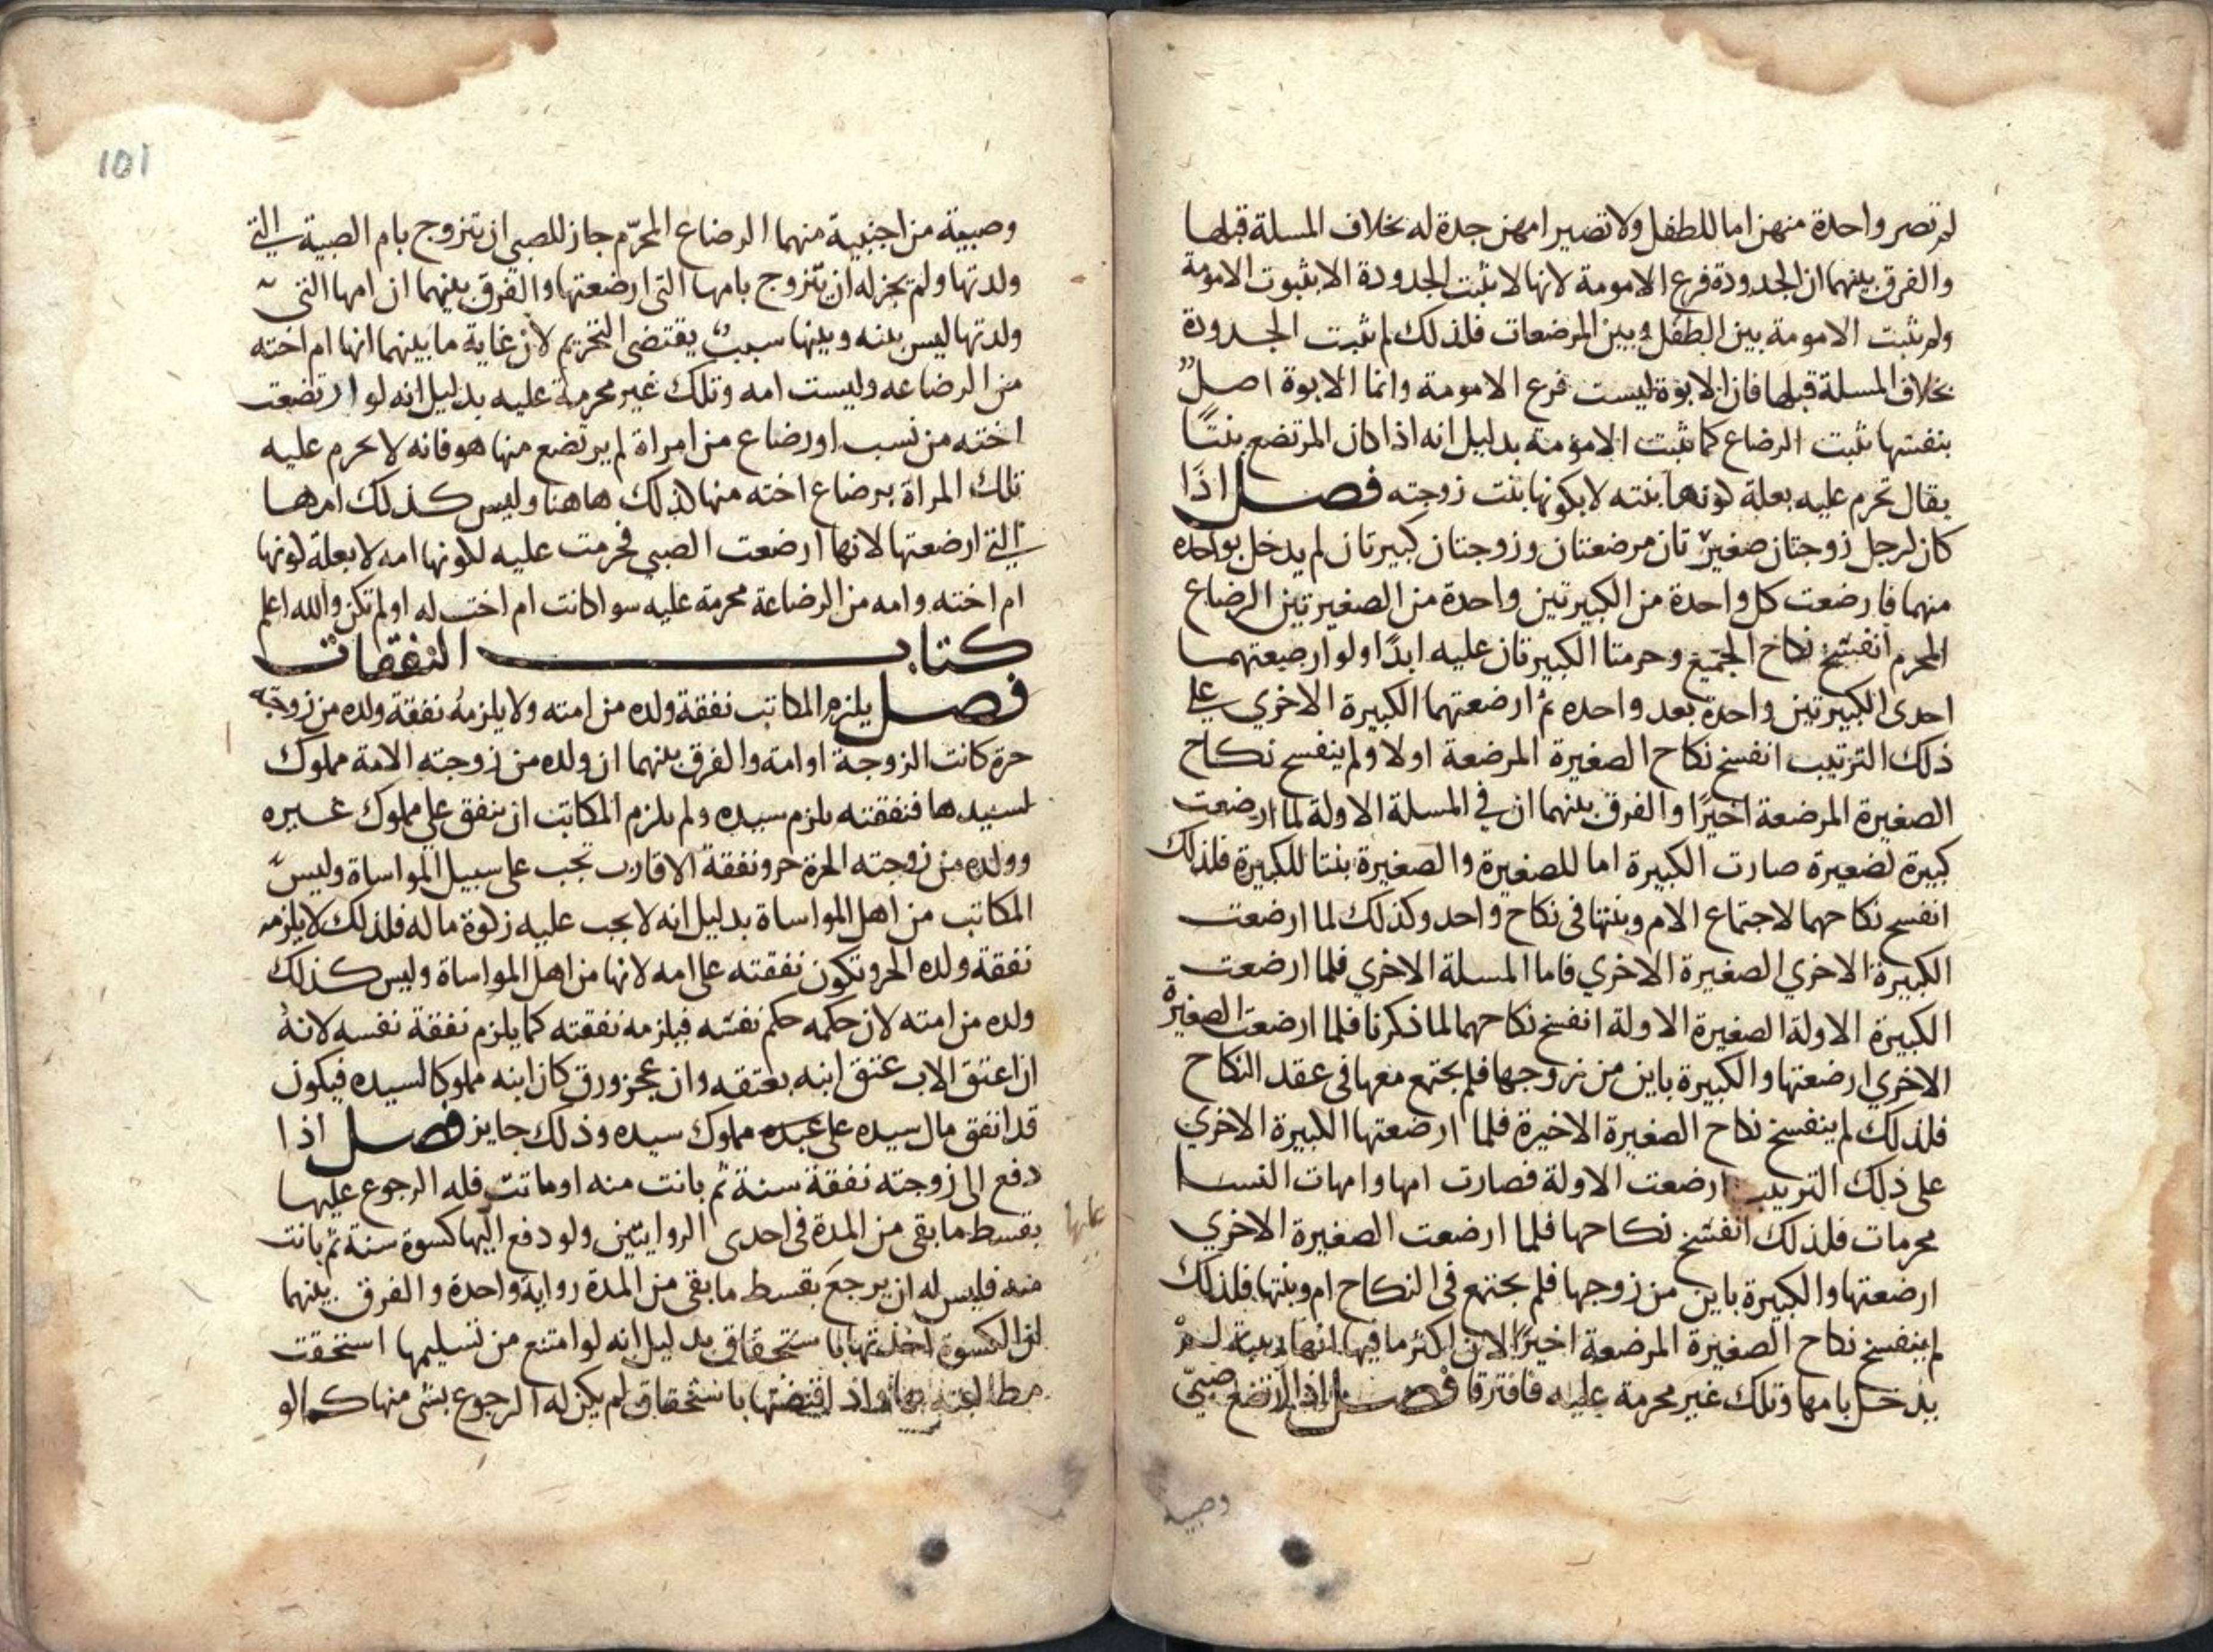 لم تصر واحدة منهن اما للطفل ولا تصير امهن جدة له بخلاف المسلة قبلها
والفرق بينهما ان الجدودة فرع الامومة لانها لا تثبت الجدودة الا بثبوت الامومة
ولم يثبت الامومة بين الطفل وبين المرضعات فلذلك لم يثبت الجدودة
بخلاف المسلة قبلها فان الابوة ليست فرع الامومة وانما الابوة اصل
بنفسها تثبت الرضاع كما تثبت الامومة بدليل انه اذا كان المرتضع بنتًا
يقال تحرم عليه بعلة كونها بنته لا بكونها بنت زوجته فصل اذا
كان لرجل زوجتان صغيرتان مرضعتان وزوجتان كبيرتان لم يدخل بواحده
منهما فارضعت كل واحدة من الكبيرتين واحدة من الصغيرتين الرضاع
المحرم انفسخ نكاح الجميع وحرمتا الكبيرتان عليه ابدًا ولو ارضعتهما
احدى الكبيرتين واحدة بعد واحده ثم ارضعتهما الكبيرة الاخري على
ذلك الترتيب انفسخ نكاح الصغيرة المرضعة اولا ولم ينفسخ نكاح
الصغيرة المرضعة اخيرًا والفرق بينهما ان في المسلة الاولة لما ارضعت
كبيرة لصغيرة صارت الكبيرة اما للصغيرة والصغيرة بنتا للكبيرة فلذلك
انفسخ نكاحهما لاجتماع الام وبنتها في نكاح واحد وكذلك لما ارضعت
الكبيرة الاخري الصغيرة الاخري فاما المسلة الاخري فلما ارضعت
الكبيرة الاولة الصغيرة الاولة انفسخ نكاحهما لما ذكرنا فلما ارضعت الصغيرة
الاخري ارضعتها والكبيرة باين من زوجها فلم يجتمع معها في عقد النكاح
فلذلك لم ينفسخ نكاح الصغيرة الاخيرة فلما ارضعتها الكبيرة الاخري
على ذلك الترتيب ارضعت الاولة فصارت امها وامهات النسا
محرمات فلذلك انفسخ نكاحها فلما ارضعت الصغيرة الاخري
ارضعتها والكبيرة باين من زوجها فلم يجتمع في النكاح ام وبنتها فلذلك
لم ينفسخ نكاح الصغيرة المرضعة اخيرًا لان اكثر ما فيها انها ربيبة لم
يدخل بامها وتلك غير محرمة عليه فافترقا فصل اذا ارتضع صبيّ
وصبية
101
وصبية من اجنبية منهما الرضاع المحرّم جاز للصبي ان يتزوج بام الصبية التي
ولدتها ولم يجز له ان يتزوج بامها التي ارضعتها والفرق بينهما ان امها التي
ولدتها ليس بينه وبينها سبب يقتضي التحريم لان غاية ما بينهما انها ام اخته
من الرضاعه وليست امه وتلك غير محرمة عليه بدليل انه لو ارتضعت
اخته من نسب او رضاع من امراة لم يرتضع منها هو فانه لا يحرم عليه
تلك المراة برضاع اخته منها لذلك هاهنا وليس كذلك امها
التي ارضعتها لانها ارضعت الصبي فحرمت عليه لكونها امه لا بعلة كونها
ام اخته وامه من الرضاعة محرمة عليه سوا كانت ام اخت له او لم تكن والله اعلم
كتاب النفقات
فصل يلزم المكاتب نفقة ولده من امته ولا يلزمه نفقة ولده من زوجته
حرة كانت الزوجة او امة والفرق بينهما ان ولده من زوجته الامة مملوك
لسيدها فنفقته يلزم سيده ولم يلزم المكاتب ان ينفق علي مملوك غيره
وولده من زوجته الحرة حر ونفقة الاقارب تجب على سبيل المواساة وليس
المكاتب من اهل المواساة بدليل انه لا يجب عليه زكوة ماله فلذلك لا يلزمه
نفقة ولده الحر وتكون نفقته على امه لانها من اهل المواساة وليس كذلك
ولده من امته لان حكمه حكم نفسه فيلزمه نفقته كما يلزم نفقة نفسه لانه
ان اعتق الاب عتق ابنه بعتقه وان عجز ورق كان ابنه مملوكا لسيده فيكون
قد انفق مال سيده على عبده مملوك سيده وذلك جايز فصل اذا
دفع الى زوجته نفقة سنة ثم بانت منه او ماتت فله الرجوع عليها
بقسط ما بقي من المدة في احدى الروايتين ولو دفع اليها كسوة سنة ثم بانت
منه فليس له ان يرجع بقسط ما بقي من المدة رواية واحدة والفرق بينهما
ان الكسوة اخذتها باستحقاق بدليل انه لو امتنع من تسليمها استحقت
مطالبته بها واذا قبضتها باستحقاق لم يكن له الرجوع بشي منها كما لو